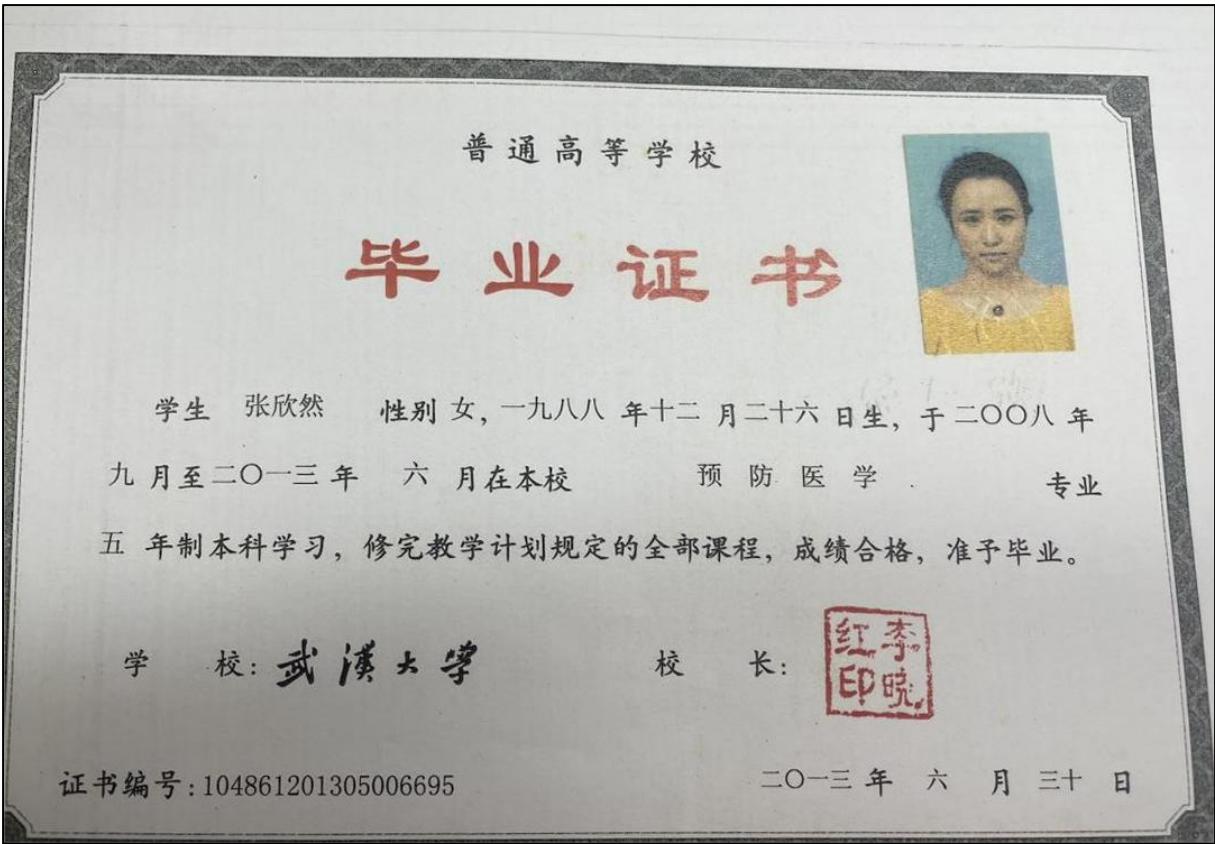 普通高等学校
毕业证书
学生 张欣然 性别 女，一九八八 年十二 月二十六 日生，于二〇〇八 年
九 月至二〇一三 年 六 月在本校 预防医学 专业
五 年制本科学习，修完教学计划规定的全部课程，成绩合格，准予毕业。
学 校：武漢大學 校 长：李晓红印
证书编号：104861201305006695 二〇一三 年 六 月 三十 日